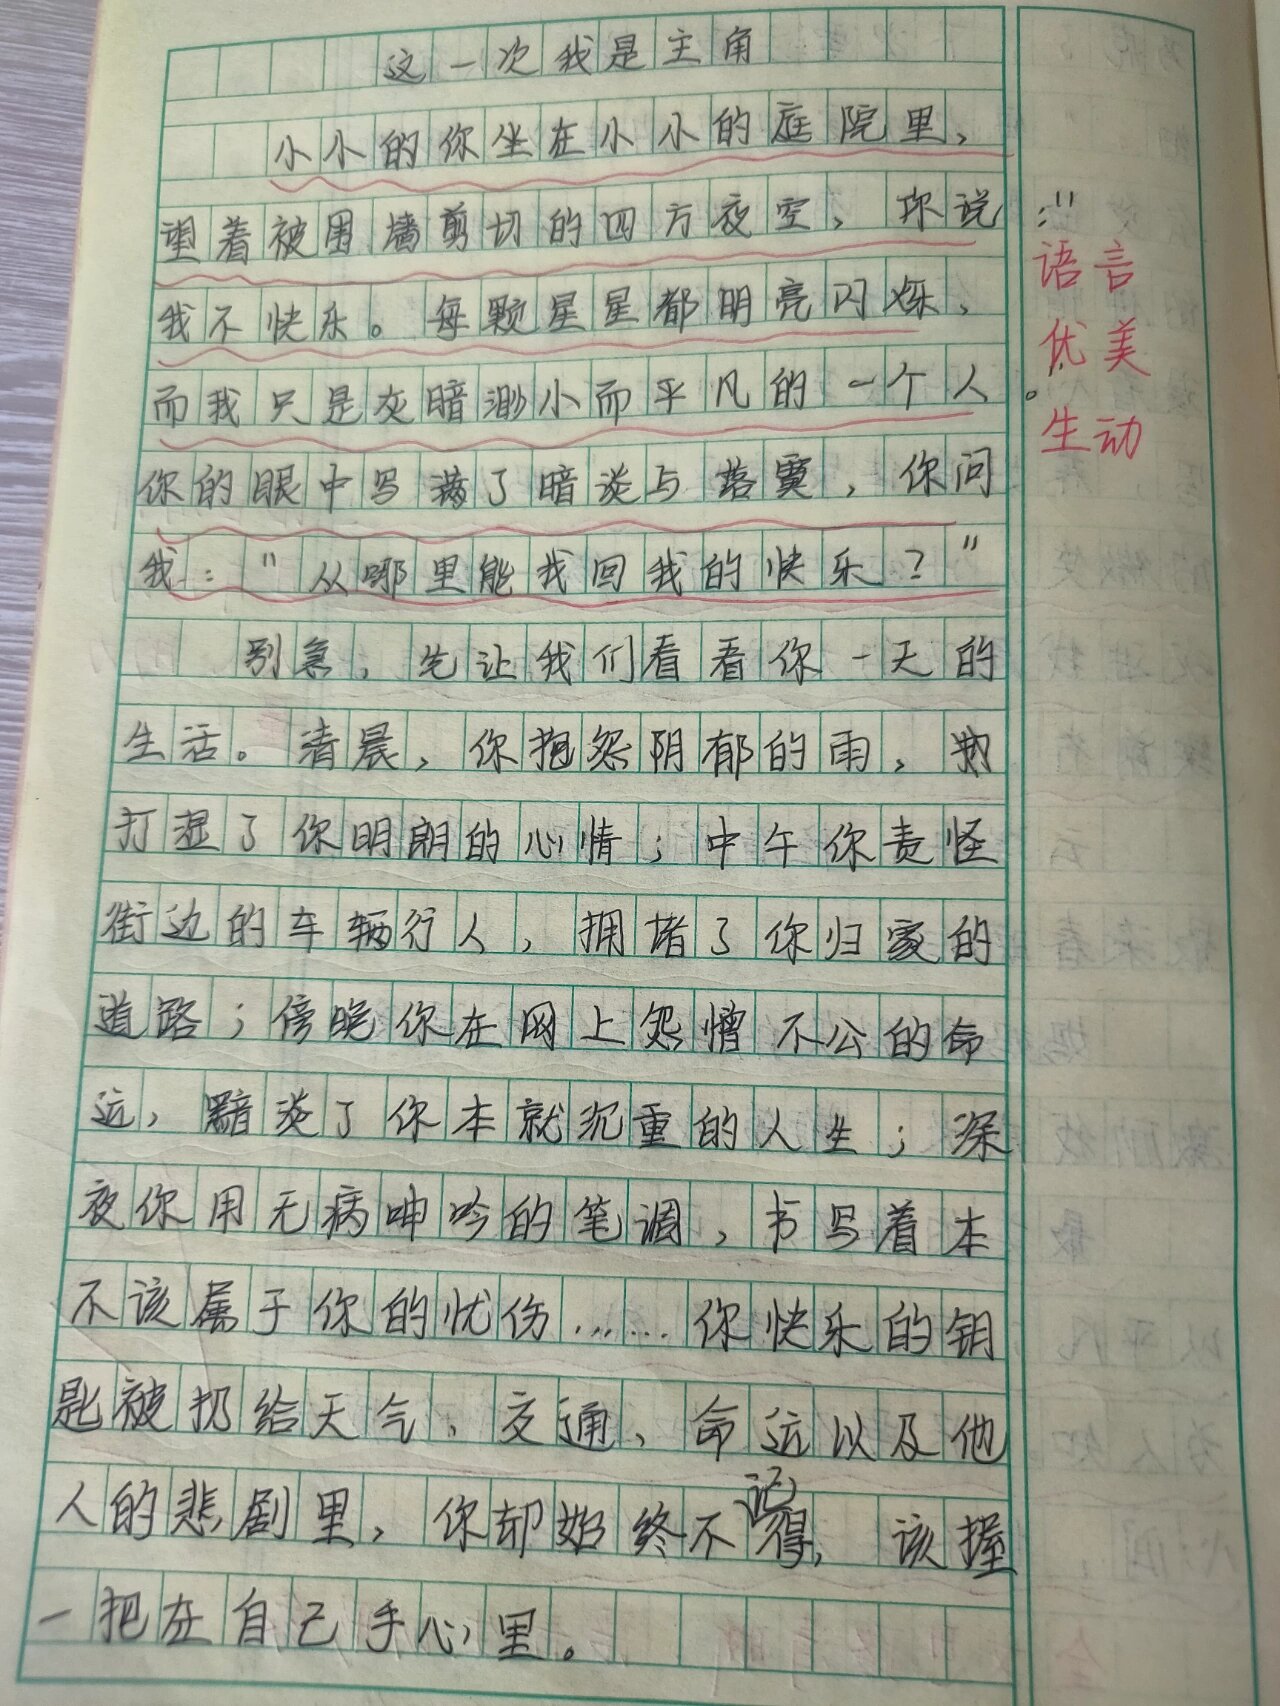 这一次我是主角
小小的你坐在小小的庭院里，
望着被围墙剪切的四方夜空，你说
我不快乐。每颗星星都明亮闪烁，
而我只是灰暗渺小而平凡的一个人。
你的眼中写满了暗淡与落寞，你问
我："从哪里能找回我的快乐？"
别急，先让我们看看你一天的
生活。清晨，你抱怨阴郁的雨，
打湿了你明朗的心情；中午你责怪
街边的车辆行人，拥堵了你归家的
道路；傍晚你在网上怨憎不公的命
运，黯淡了你本就沉重的人生；深
夜你用无病呻吟的笔调，书写着本
不该属于你的忧伤……你快乐的钥
匙被扔给天气、交通、命运以及他
人的悲剧里，你却始终不记得，该握
一把在自己手心里。
语言
优美
生动